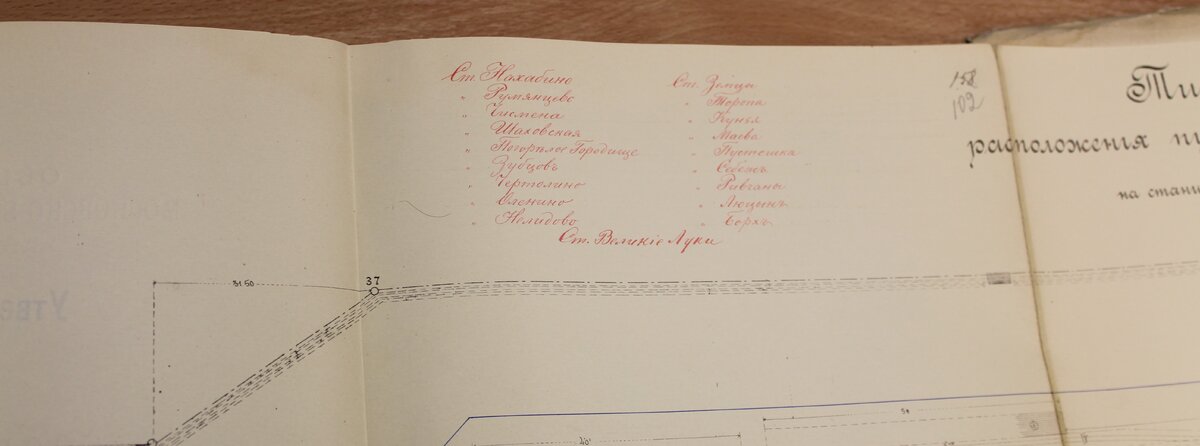 Ст. Нахабино
„ Румянцево
„ Чисмена
„ Шаховская
„ Погорѣлое Городище
„ Зубцовъ
„ Чертолино
„ Оленино
„ Нелидово
Ст. Земцы
„ Торопа
„ Кунья
„ Маева
„ Пустошка
„ Себежъ
„ Ривчаны
„ Люцынъ
„ Борхъ
Ст. Великіе Луки
158
102
Ти
расположенія
на стани
37
51.50
Утве